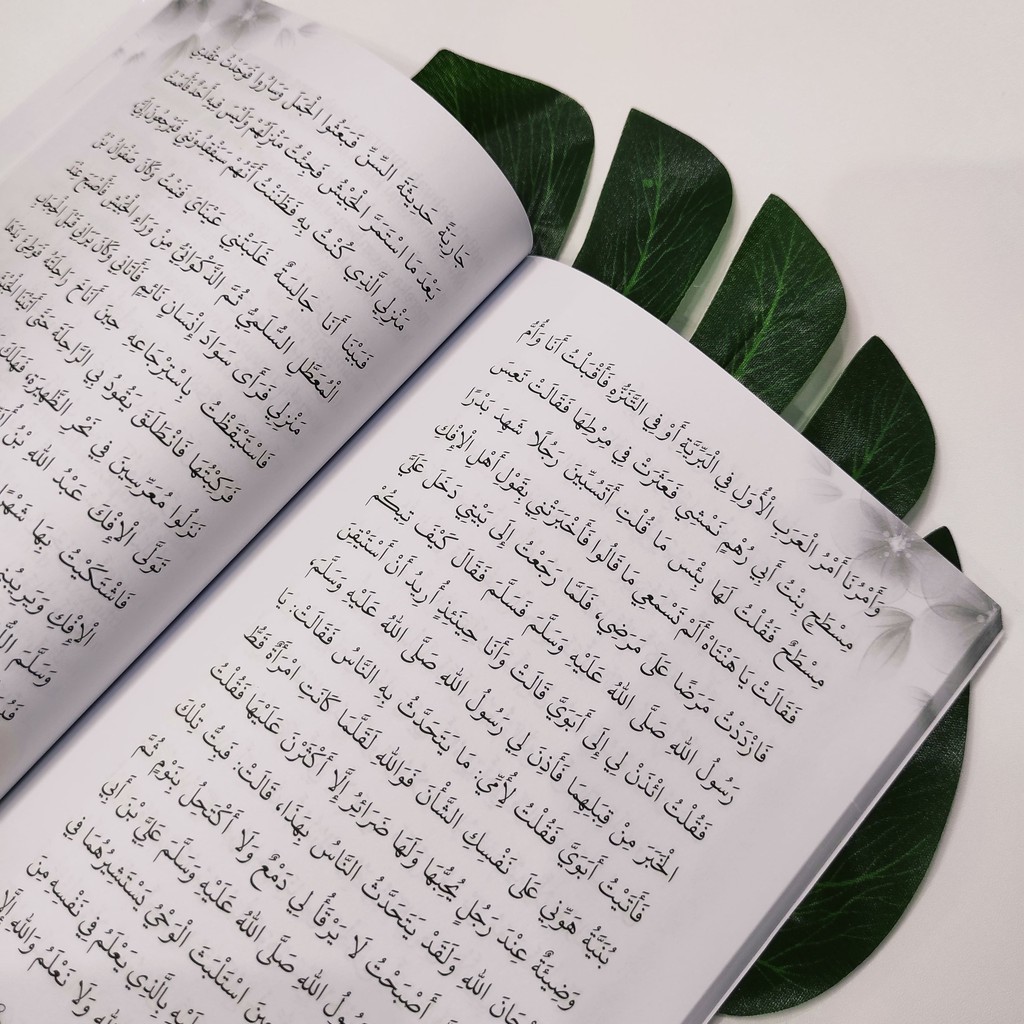 جَارِيَةً حَدِيثَةَ السِّنِّ فَبَعَثُوا الْجَمَلَ وَسَارُوا فَوَجَدْتُ عِقْدِي
بَعْدَ مَا اسْتَمَرَّ الْجَيْشُ فَجِئْتُ مَنْزِلَهُمْ وَلَيْسَ فِيهِ أَحَدٌ فَأَمَمْتُ
مَنْزِلِي الَّذِي كُنْتُ بِهِ فَظَنَنْتُ أَنَّهُمْ سَيَفْقِدُونَنِي فَيَرْجِعُونَ إِلَيَّ
فَبَيْنَا أَنَا جَالِسَةٌ غَلَبَتْنِي عَيْنَايَ فَنِمْتُ وَكَانَ صَفْوَانُ بْنُ
الْمُعَطَّلِ السُّلَمِيُّ ثُمَّ الذَّكْوَانِيُّ مِنْ وَرَاءِ الْجَيْشِ فَأَصْبَحَ عِنْدَ
مَنْزِلِي فَرَأَى سَوَادَ إِنْسَانٍ نَائِمٍ فَأَتَانِي وَكَانَ يَرَانِي قَبْلَ الْحِجَابِ
فَاسْتَيْقَظْتُ بِاسْتِرْجَاعِهِ حِينَ أَنَاخَ رَاحِلَتَهُ فَوَطِئَ يَدَهَا
فَرَكِبْتُهَا فَانْطَلَقَ يَقُودُ بِي الرَّاحِلَةَ حَتَّى أَتَيْنَا
نَزَلُوا مُعَرِّسِينَ فِي نَحْرِ الظَّهِيرَةِ،
تَوَلَّى الْإِفْكَ عَبْدُ اللهِ بْنُ
فَاشْتَكَيْتُ بِهَا شَهْرًا
الْإِفْكِ وَيَرِيبُنِي
وَسَلَّمَ
وَأَمْرُنَا أَمْرُ الْعَرَبِ الْأُوَلِ فِي الْبَرِّيَّةِ أَوْ فِي التَّنَزُّهِ فَأَقْبَلْتُ أَنَا وَأُمُّ
مِسْطَحٍ بِنْتُ أَبِي رُهْمٍ نَمْشِي فَعَثَرَتْ فِي مِرْطِهَا فَقَالَتْ تَعِسَ
مِسْطَحٌ فَقُلْتُ لَهَا بِئْسَ مَا قُلْتِ أَتَسُبِّينَ رَجُلًا شَهِدَ بَدْرًا
فَقَالَتْ يَا هَنْتَاهْ أَلَمْ تَسْمَعِي مَا قَالُوا فَأَخْبَرَتْنِي بِقَوْلِ أَهْلِ الْإِفْكِ
فَازْدَدْتُ مَرَضًا عَلَى مَرَضِي، فَلَمَّا رَجَعْتُ إِلَى بَيْتِي دَخَلَ عَلَيَّ
رَسُولُ اللهِ صَلَّى اللهُ عَلَيْهِ وَسَلَّمَ فَسَلَّمَ فَقَالَ كَيْفَ تِيكُمْ
فَقُلْتُ ائْذَنْ لِي إِلَى أَبَوَيَّ قَالَتْ وَأَنَا حِينَئِذٍ أُرِيدُ أَنْ أَسْتَيْقِنَ
الْخَبَرَ مِنْ قِبَلِهِمَا فَأَذِنَ لِي رَسُولُ اللهِ صَلَّى اللهُ عَلَيْهِ وَسَلَّمَ،
فَأَتَيْتُ أَبَوَيَّ فَقُلْتُ لِأُمِّي: مَا يَتَحَدَّثُ بِهِ النَّاسُ فَقَالَتْ: يَا
بُنَيَّةُ هَوِّنِي عَلَى نَفْسِكِ الشَّأْنَ فَوَاللهِ لَقَلَّمَا كَانَتِ امْرَأَةٌ قَطُّ
وَضِيئَةٌ عِنْدَ رَجُلٍ يُحِبُّهَا وَلَهَا ضَرَائِرُ إِلَّا أَكْثَرْنَ عَلَيْهَا فَقُلْتُ
اللهِ وَلَقَدْ يَتَحَدَّثُ النَّاسُ بِهَذَا، قَالَتْ: فَبِتُّ تِلْكَ
أَصْبَحْتُ لَا يَرْقَأُ لِي دَمْعٌ وَلَا أَكْتَحِلُ بِنَوْمٍ ثُمَّ
اللهِ صَلَّى اللهُ عَلَيْهِ وَسَلَّمَ عَلِيَّ بْنَ أَبِي
اسْتَلْبَثَ الْوَحْيُ يَسْتَشِيرُهُمَا فِي
بِالَّذِي يَعْلَمُ فِي نَفْسِهِ مِنَ
وَلَا نَعْلَمُ وَاللهِ إِلَّا